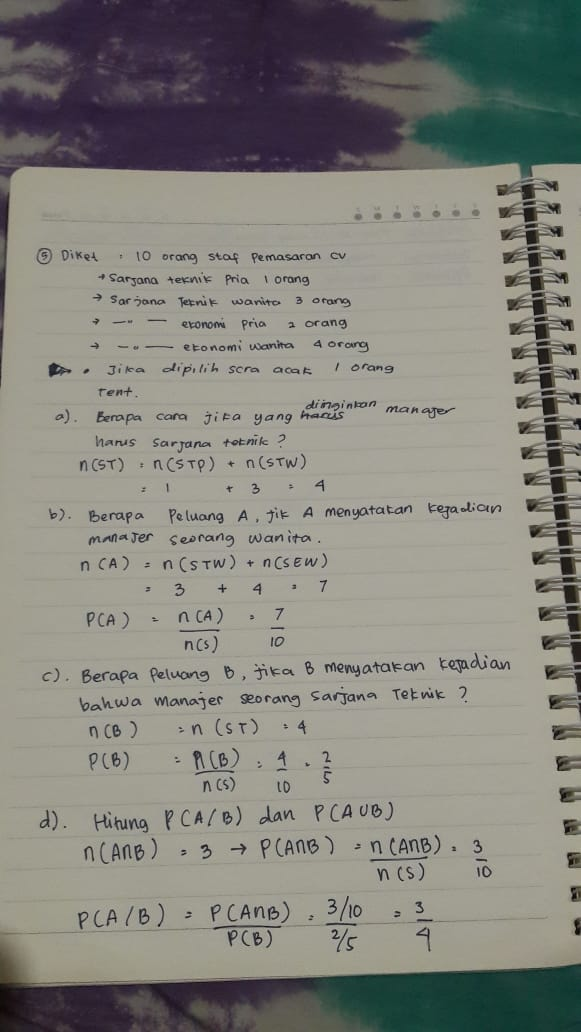 ⑤ Diket : 10 orang staf Pemasaran CV
→ Sarjana teknik Pria 1 orang
→ Sarjana Teknik wanita 3 orang
→ —"— ekonomi Pria 2 orang
→ —"— ekonomi wanita 4 orang
• Jika dipilih scra acak 1 orang
tent.
a). Berapa cara jika yang diinginkan manajer
harus sarjana teknik ?
n(ST) = n(STP) + n(STW)
= 1 + 3 = 4
b). Berapa Peluang A, jik A menyatakan kejadian
manajer seorang wanita.
n(A) = n(STW) + n(SEW)
= 3 + 4 = 7
P(A) = n(A)/n(s) = 7/10
c). Berapa Peluang B, jika B menyatakan kejadian
bahwa manajer seorang sarjana Teknik ?
n(B) = n(ST) = 4
P(B) = n(B)/n(s) = 4/10 = 2/5
d). Hitung P(A/B) dan P(A∪B)
n(A∩B) = 3 → P(A∩B) = n(A∩B)/n(s) = 3/10
P(A/B) = P(A∩B)/P(B) = 3/10 / 2/5 = 3/4